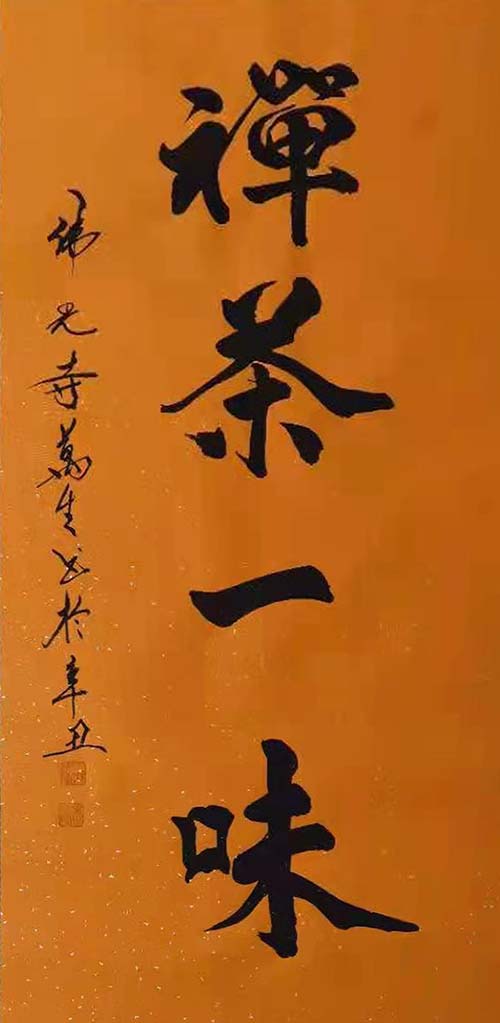 禪茶一味
佛光寺萬生书於辛丑